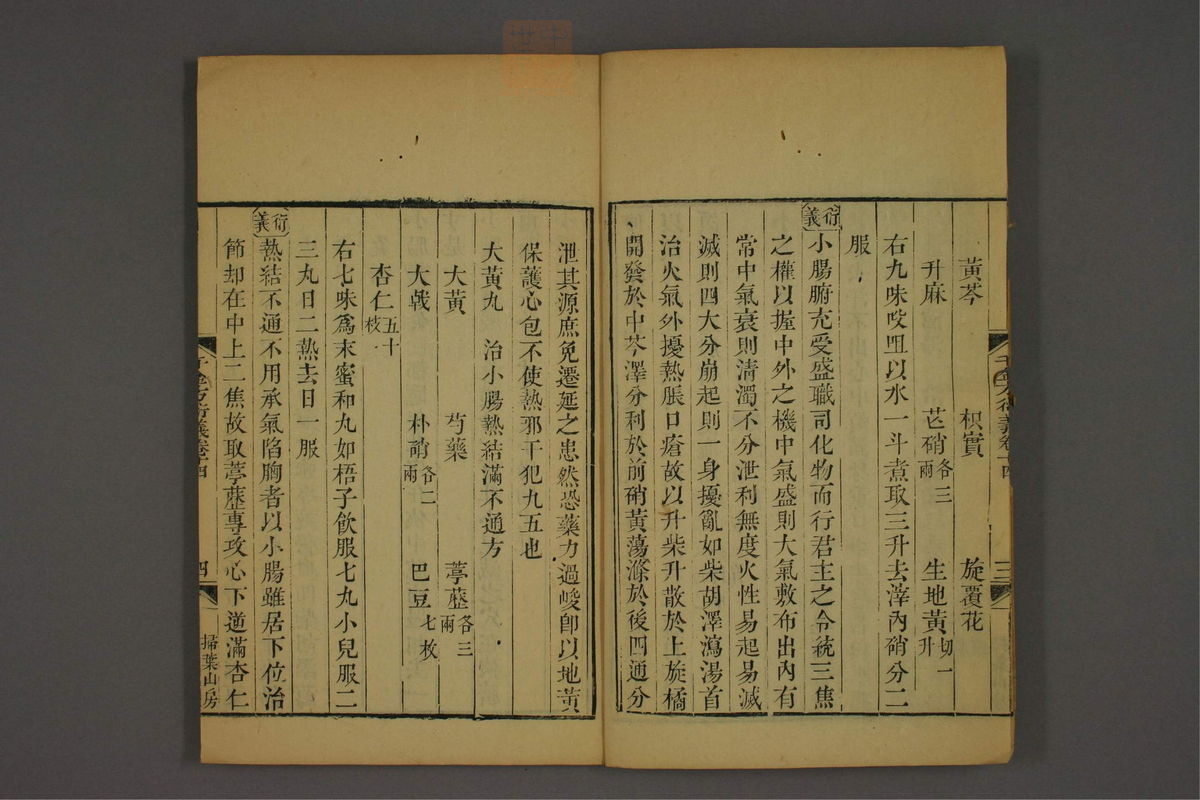 黃芩　枳實　旋覆花
升麻　芒硝各三兩　生地黃切一升
右九味㕮咀以水一斗煮取三升去滓內硝分二
服
衍義　小腸腑充受盛職司化物而行君主之令統三焦
之權以握中外之機中氣盛則大氣敷布出內有
常中氣衰則清濁不分泄利無度火性易起易滅
滅則四大分崩起則一身擾亂如柴胡澤瀉湯首
治火氣外擾熱脹口瘡故以升柴升散於上旋橘
開發於中芩澤分利於前硝黃蕩滌於後四通分
泄其源庶免遷延之患然恐藥力過峻卽以地黃
保護心包不使熱邪干犯九五也
大黃丸　治小腸熱結滿不通方
大黃　芍藥　葶藶各三兩
大戟　朴硝各二兩　巴豆七枚
杏仁五十枝
右七味爲末蜜和丸如梧子飮服七丸小兒服二
三丸日二熱去日一服
衍義　熱結不通不用承氣陷胸者以小腸雖居下位治
節却在中上二焦故取葶藶專攻心下逆滿杏仁
四
掃葉山房